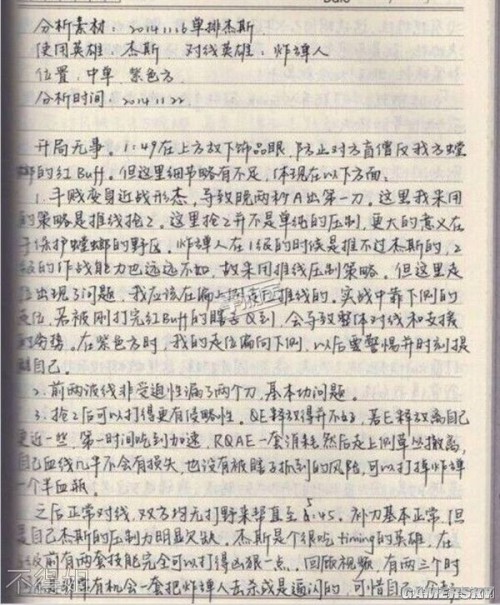 分析素材：2014.11.16单排杰斯
使用英雄：杰斯 对线英雄：炸弹人
位置：中单 紫色方
分析时间：2014.11.22
开局无事。1:49在上方放下饰品眼，防止对方盲僧反我方螳
螂的红Buff。但这里细节略有不足，体现在以下方面。
1.手贱变身近战形态，导致晚两秒A出第一刀。这里我采用
的策略是推线抢2。这里抢2并不是单纯的压制，更大的意义在
于保护螳螂的野区，炸弹人在1级的时候是推不过杰斯的，2
级的作战能力也远远不如，故采用推线压制策略。但这里走
位出现了问题，我应该在偏上侧走位推线的。实战中靠下侧的
走位，若被刚打完红Buff的瞎子Q到，会导致整体对线和支援
的劣势。在紫色方时，我的走位偏向下侧，以后要警惕并时刻提
醒自己。
2.前两波线非受迫性漏了两个刀，基本功问题。
3.抢2后可以打得更有侵略性。QE释放得并不好，若E释放离自己
更近一些，第一时间吃到加速，RQAE一套消耗然后走上侧草丛撤离，
自己血线几乎不会有损失，也没有被瞎子抓到的风险，可以打掉炸弹
一个半血瓶。
之后正常对线，双方均无打野来帮直至5:45。补刀基本正常，但
是自己杰斯的压制力明显欠缺。杰斯是个很吃timing的英雄，在
前有两套技能完全可以打得凶狠一点，回放视频，有两三个时
有机会一套把炸弹人击杀或是逼闪的，可惜自己
不得姐
GAMERSKY